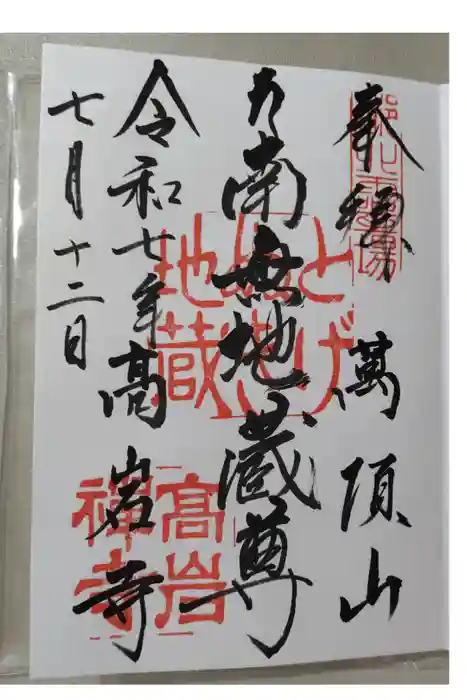 奉拝 萬頂山
南無地蔵尊
令和七年 高岩寺
七月十二日
とげ
地蔵
高岩
禪寺